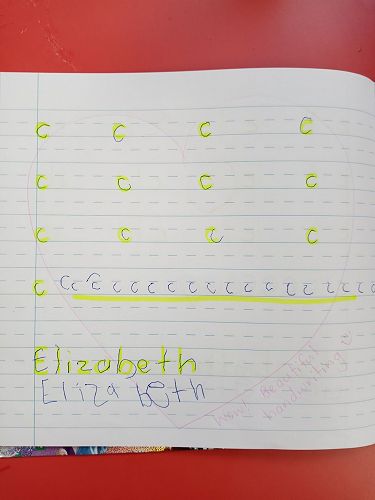 c c c c
c c c c
c c c c
c c c c c c c c c c c c c c c c c c
Elizabeth
Elizabeth
Wow! Beautiful
handwriting ☺